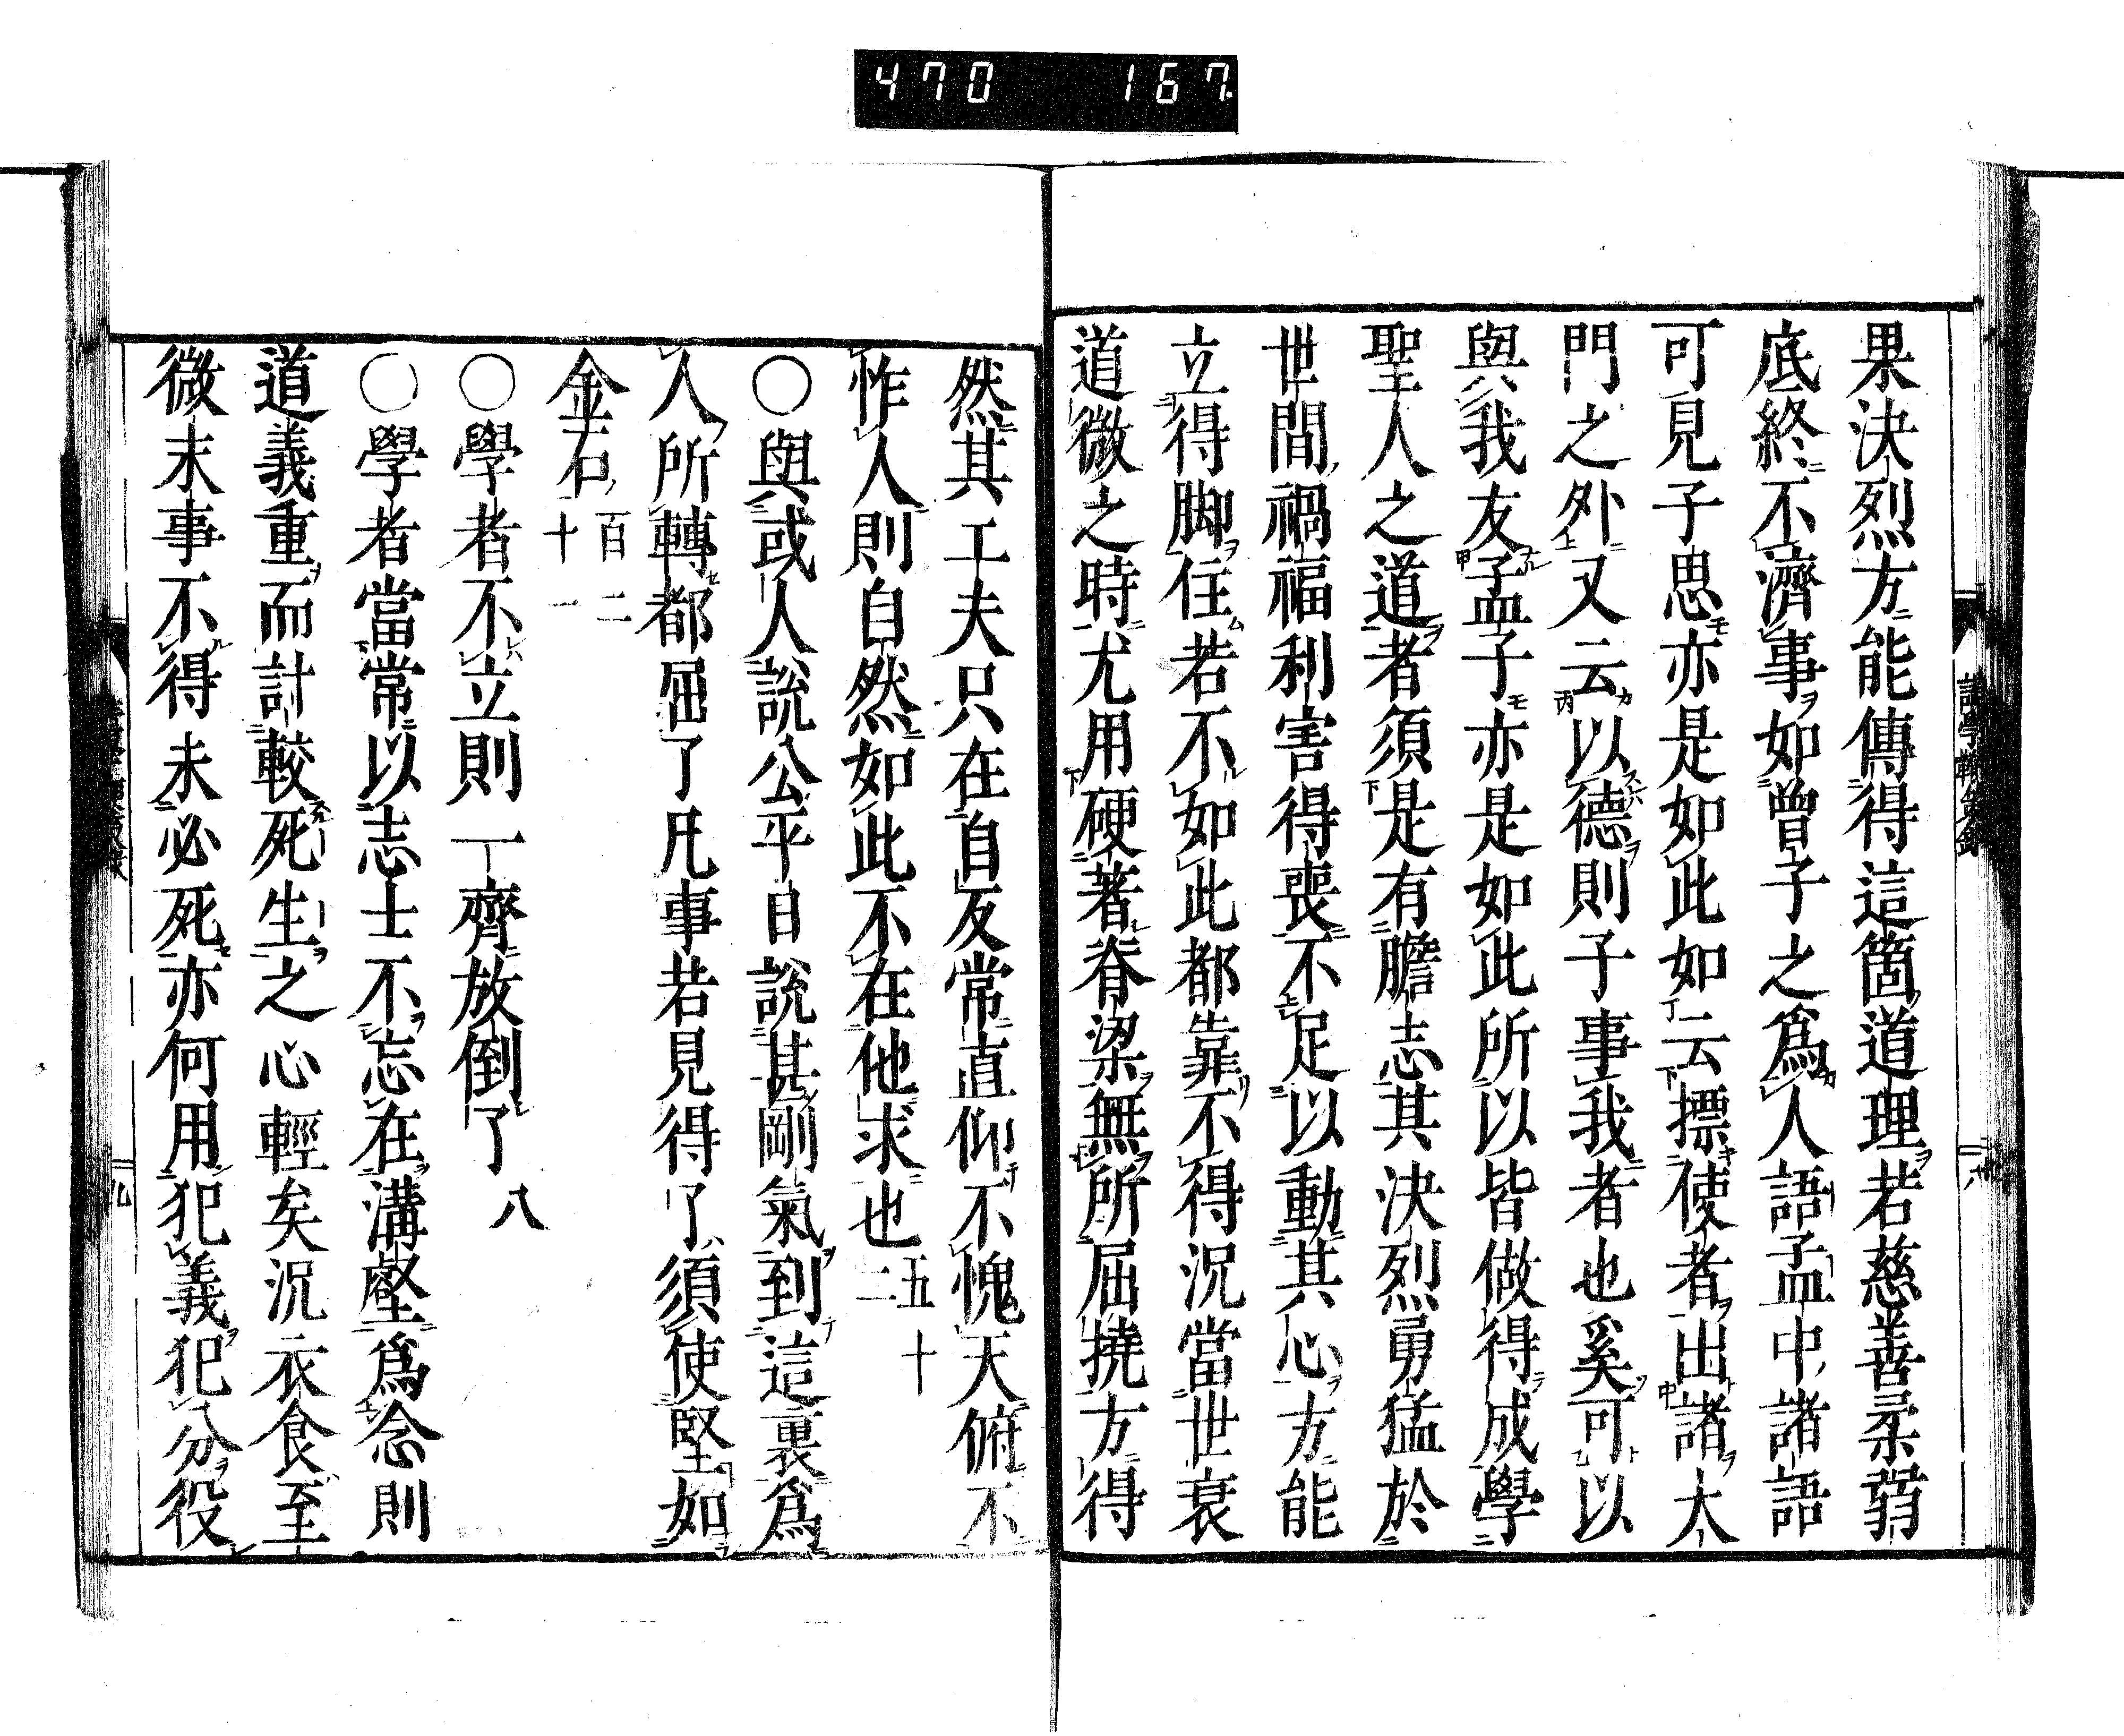 470 167
果決烈方能傳得這箇道理若慈善柔弱
底終不濟事如曾子之爲人語孟中諸語
可見子思亦是如此如云摽使者出諸大
門之外又云以德則子事我者也奚可以
與我友孟子亦是如此所以皆做得成學
聖人之道者須是有膽志其決烈勇猛於
世間禍福利害得喪不足以動其心方能
立得脚住若不如此都靠不得況當世衰
道微之時尤用硬著脊梁無所屈撓方得
然其工夫只在自反常直仰不愧天俯不
怍人則自然如此不在他求也 五十二
○與或人說公平日說甚剛氣到這裏爲
人所轉都屈了凡事若見得了須使堅如
金石 百二十一
○學者不立則一齊放倒了 八
○學者當常以志士不忘在溝壑爲念則
道義重而計較死生之心輕矣況衣食至
微末事不得未必死亦何用犯義犯分役